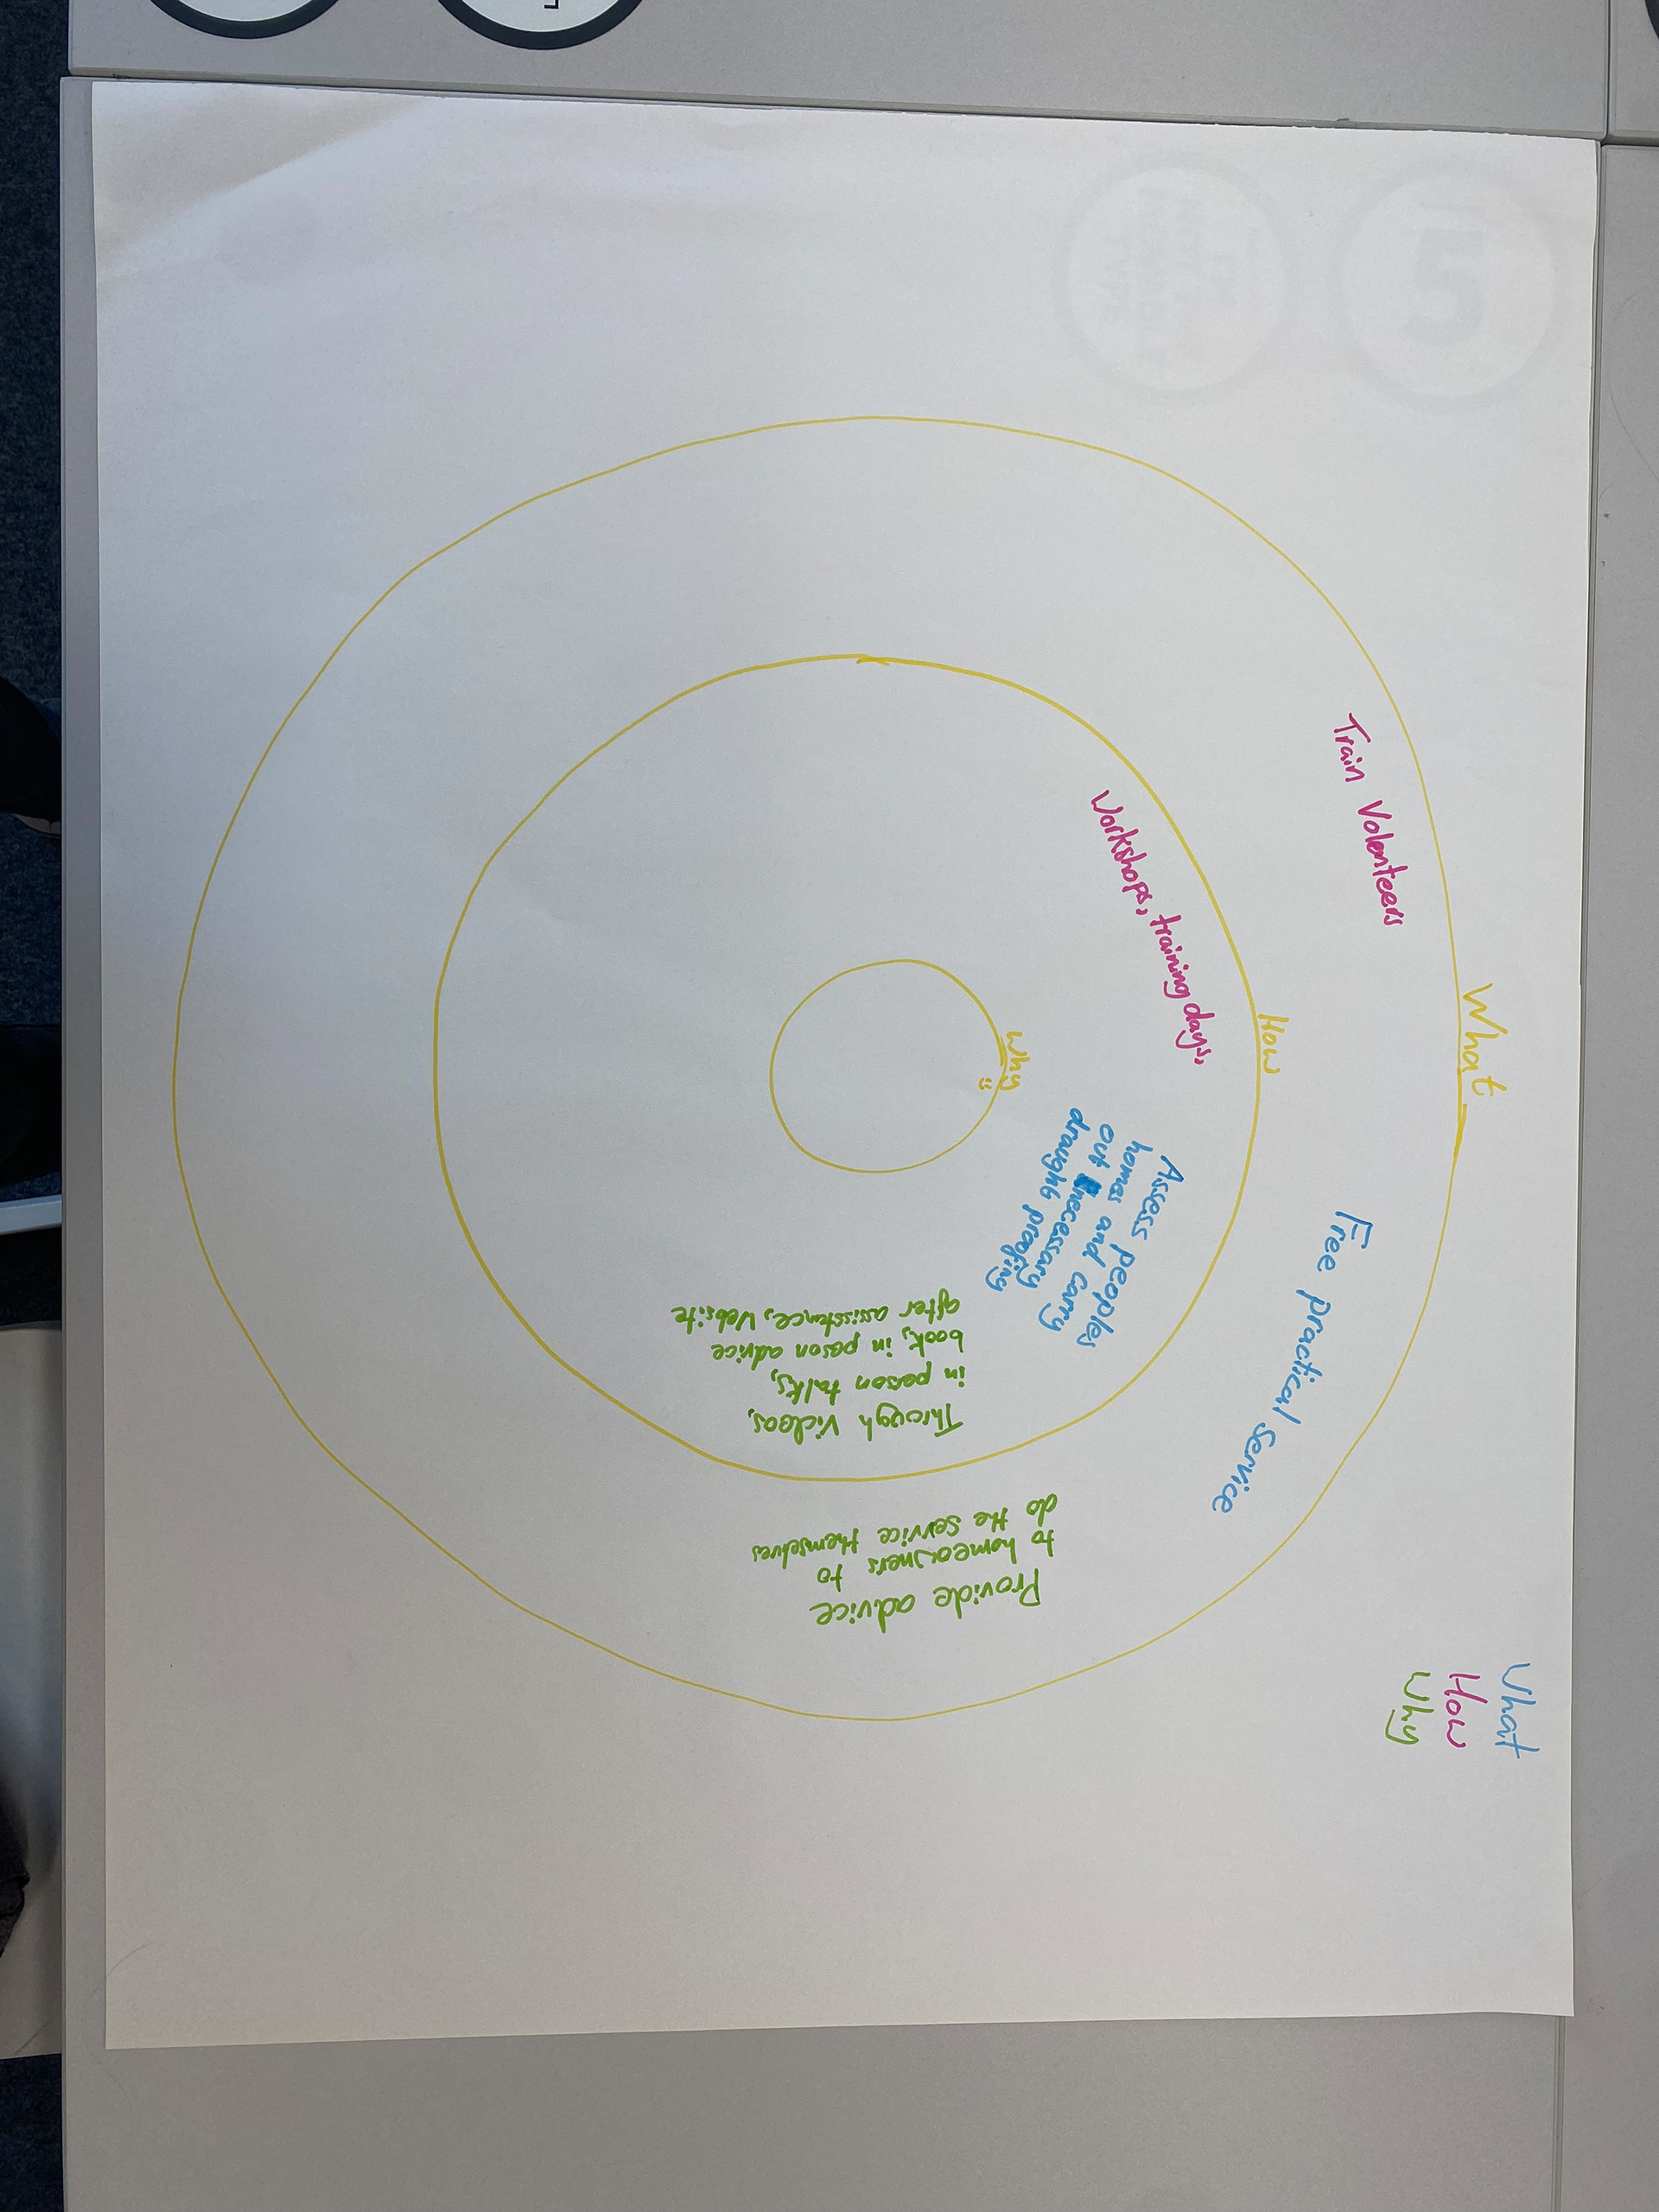 What
How
Why
Train Volenteers
Free practical Service
Provide advice
to homeowners to
do the service themselves
Workshops, training days,
Assess peoples
homes and carry
out necessary
draught proofing
Through Videos,
in person talks,
book, in person advice
after assisstance, Website
What
How
Why
5